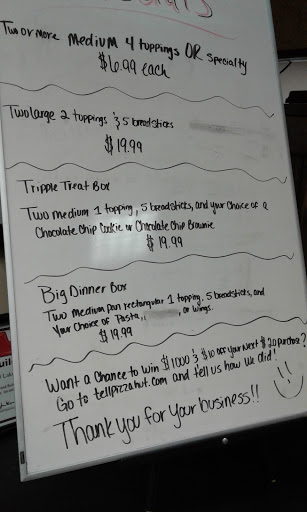 Two or more medium 4 toppings OR Specialty
$6.99 each
Two large 2 toppings & 5 breadsticks
$19.99
Tripple Treat Box
Two medium 1 topping, 5 breadsticks, and your choice of a
Chocolate Chip Cookie or Chocolate Chip Brownie
$19.99
Big Dinner Box
Two Medium pan rectangular 1 topping, 5 breadsticks, and
Your Choice of Pasta, , or wings.
$19.99
Want a Chance to Win $1000 & $10 off your Next $20 purchase?
Go to tellpizzahut.com and tell us how we did!
Thank you for your business!!